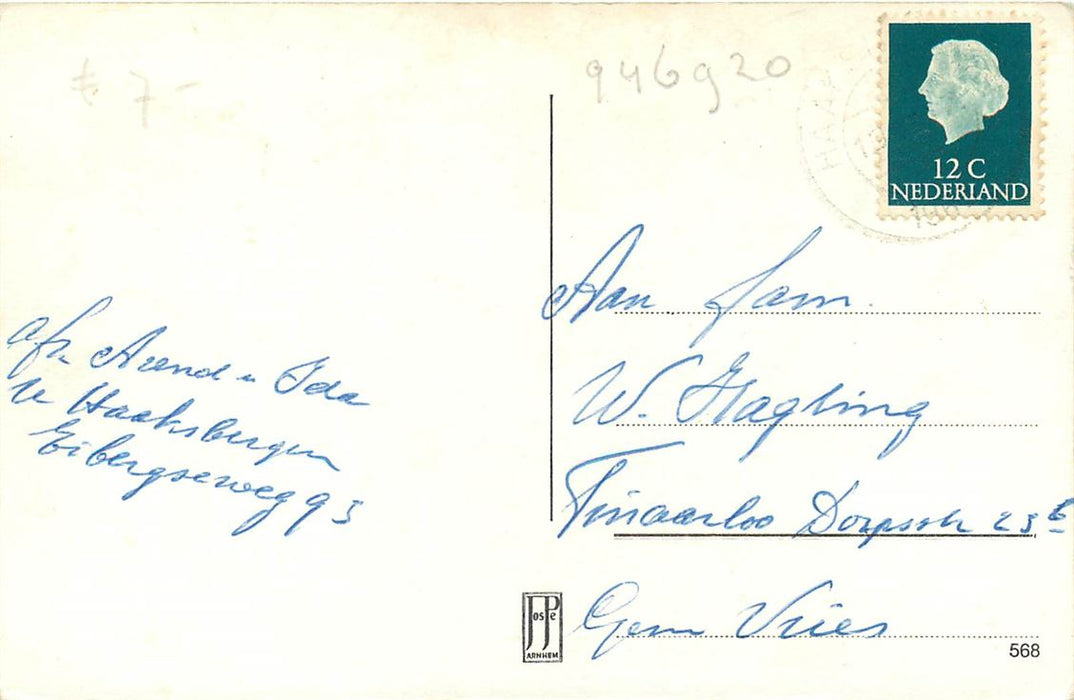 € 7-
946920
HAA
12 C
NEDERLAND
196
afz. Arend en Ida
te Haaksbergen
Eibergseweg 93
Aan fam.
W. Hagting
Tinaarloo Dorpsstr 23 E
Gem Vries
JosPe
ARNHEM
568